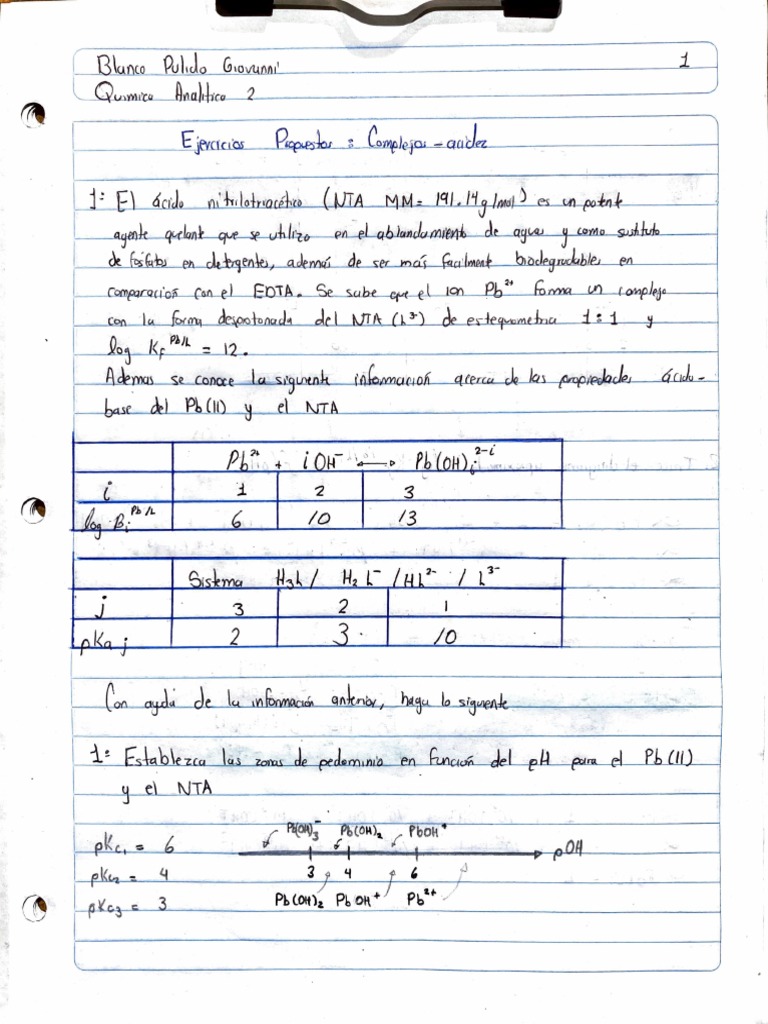 Blanco Pulido Giovanni
1
Química Analítica 2
Ejercicios Propuestos: Complejos-acidez
1: El ácido nitrilotriacético (NTA MM= 191.14g/mol) es un potente
agente quelant que se utiliza en el ablandamiento de aguas y como sustituto
de fosfatos en detergentes, además de ser más facilmente biodegradables en
comparación con el EDTA. Se sabe que el ion Pb²⁺ forma un complejo
con la forma desprotonada del NTA (L³⁻) de estequometria 1:1 y
log Kf^Pb/L = 12.
Ademas se conoce la siguiente información acerca de las propiedades ácido-
base del Pb(II) y el NTA
Pb²⁺ + i OH⁻ ⟷ Pb(OH)ᵢ²⁻ⁱ
i 1 2 3
log Bᵢ^Pb/L 6 10 13
Sistema H₃L / H₂L⁻ / HL²⁻ / L³⁻
j 3 2 1
pKa j 2 3. 10
Con ayuda de la información anterior, haga lo siguiente
1: Establezca las zonas de pedominio en función del pH para el Pb(II)
y el NTA
pKc₁ = 6
pKc₂ = 4
pKc₃ = 3
Pb(OH)₃⁻ Pb(OH)₂ PbOH⁺
pOH
3 4 6
Pb(OH)₂ PbOH⁺ Pb²⁺